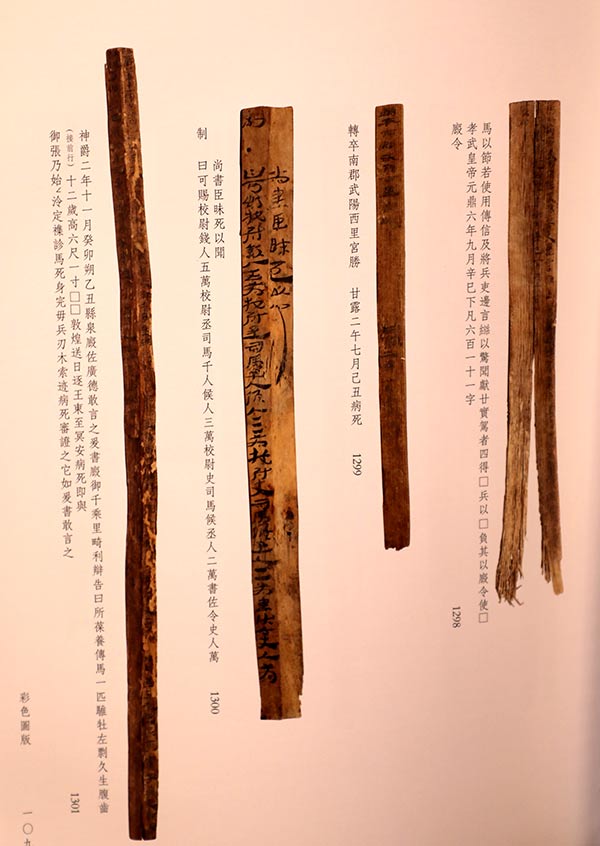 馬以節若使用傳信及將兵吏邊言以驚聞獻廿寶駕者四得□兵以□負其以廄令使□
孝武皇帝元鼎六年九月辛巳下凡六百一十一字
廄令
1298
轉卒南郡武陽西里宮勝 甘露二年七月己丑病死
1299
尚書臣昧死以聞
制 曰可賜校尉錢人五萬校尉丞司馬千人候人三萬校尉史司馬候丞人二萬書佐令史人萬
1300
神爵二年十一月癸卯朔乙丑縣泉廄佐廣德敢言之爰書廄御千乘里畸利辯告曰所葆養傳馬一匹騅牡左剽久生腹齒
(接前行)十二歲高六尺一寸□□敦煌送日逐王東至冥安病死即與
御張乃始=泠定襍診馬死身完毋兵刃木索迹病死審證之它如爰書敢言之
1301
彩色圖版 一〇九